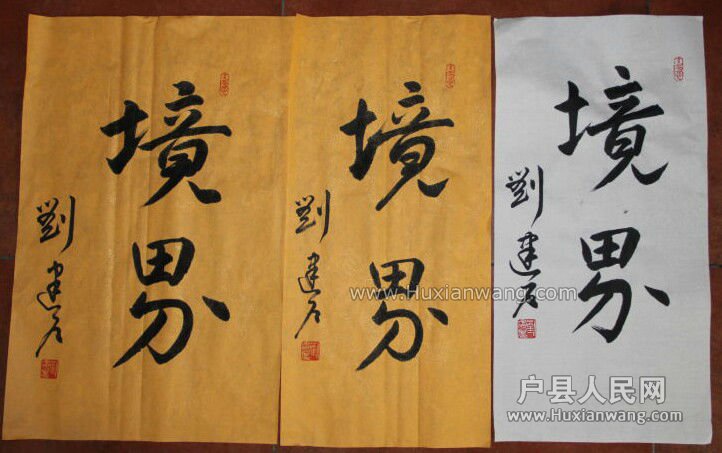 境界
劉建
境界
劉建
境界
劉建
www.Huxianwang.com
户县人民网
www.Huxianwang.com